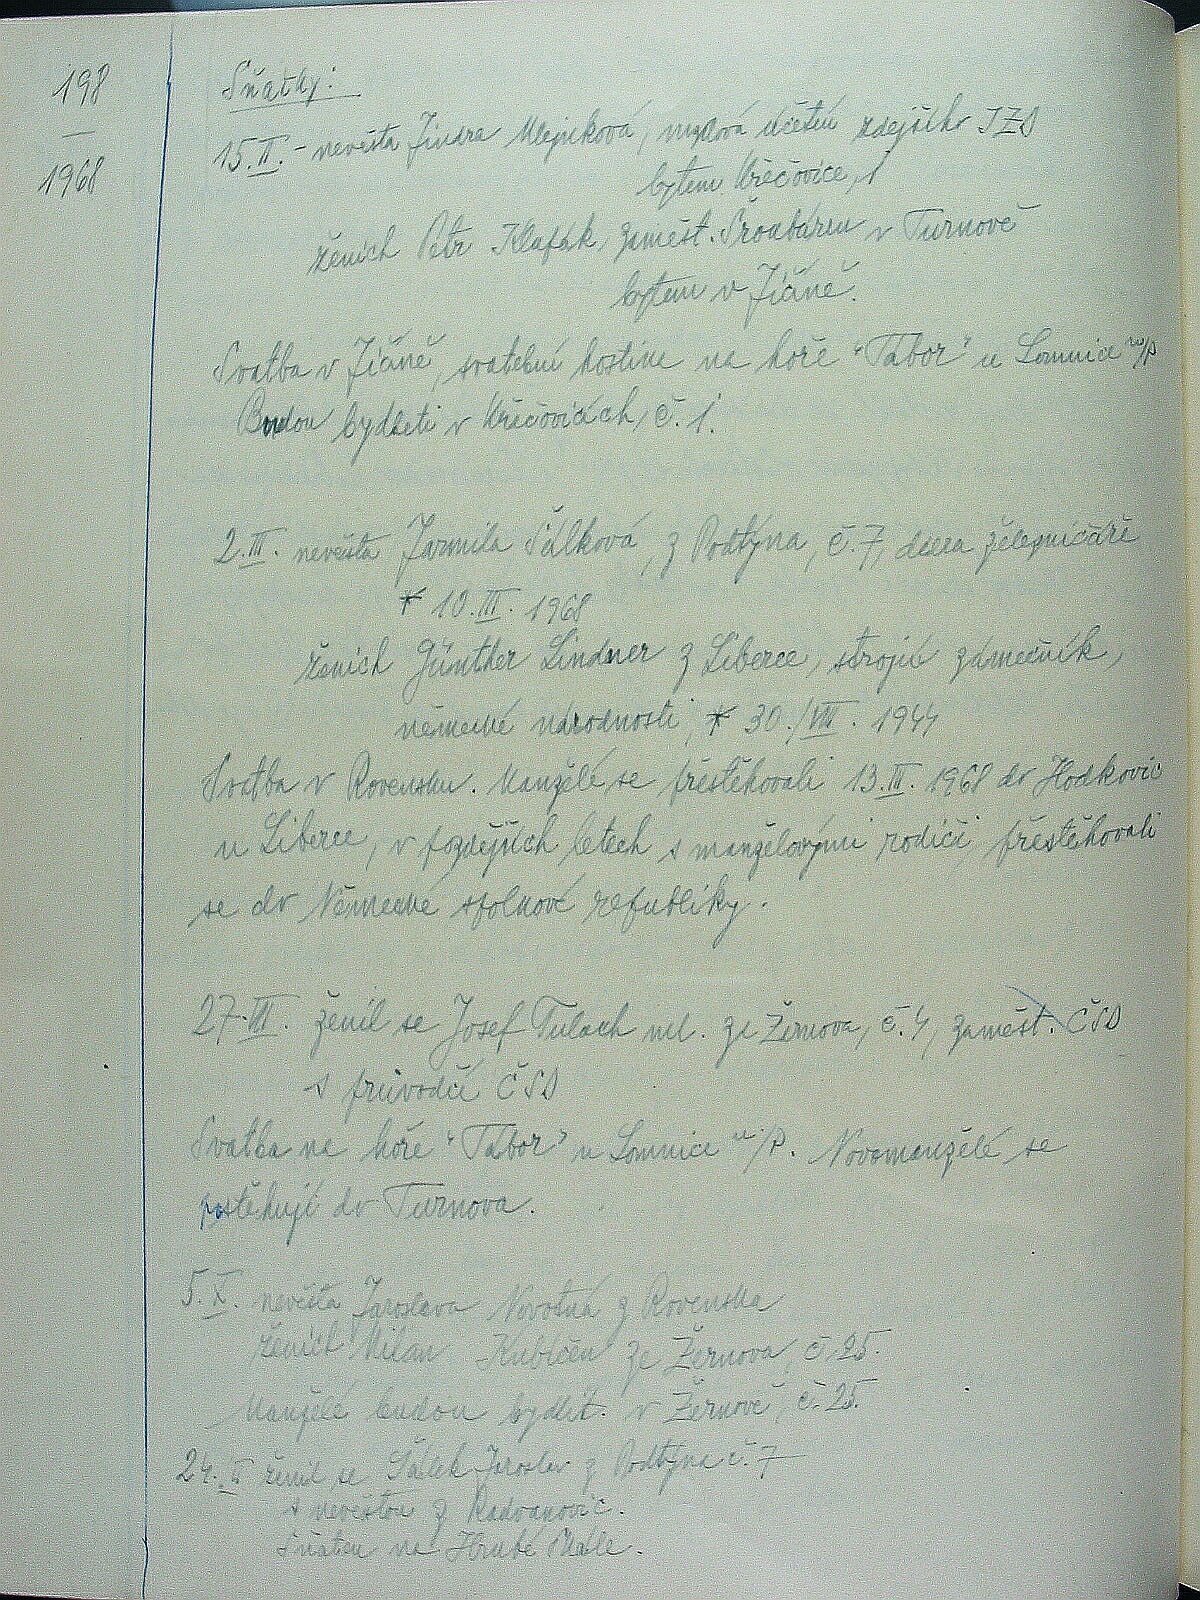 198
—
1968
Sňatky:
15.II. - nevěsta Jindra Mlejnková, mzdová účetní zdejšího JZD
bytem Křečovice, 1
ženich Petr Klapák, zaměst. Šroubáren v Turnově
bytem v Jičíně.
Svatba v Jičíně, svatební hostina na hoře "Tábor" u Lomnice n/P
Budou bydleti v Křečovicích, č. 1.
2.III. nevěsta Jarmila Šálková, z Podtýna, č. 7, dcera železničáře
* 10.III. 1968
ženich Günther Lindner z Liberce, strojní zámečník,
německé národnosti, * 30./VIII. 1944
Svatba v Rovensku. Manželé se přestěhovali 13.III. 1968 do Hodkovic
u Liberce, v pozdějších letech s manželovými rodiči přestěhovali
se do Německé spolkové republiky.
27.III. ženil se Josef Tulach ml. ze Žernova, č. 4, zaměst. ČSD
s průvodčí ČSD
Svatba na hoře "Tábor" u Lomnice n./P. Novomanželé se
postěhují do Turnova.
5.X. nevěsta Jaroslava Novotná z Rovenska
ženich Milan ze Žernova, č. 25.
Manželé budou bydlit. v Žernově, č. 25.
24. ženil se Šálek Jaroslav z Podtýna č. 7
s nevěstou z Radvanovic.
Sňatek na Hrubé Skále.